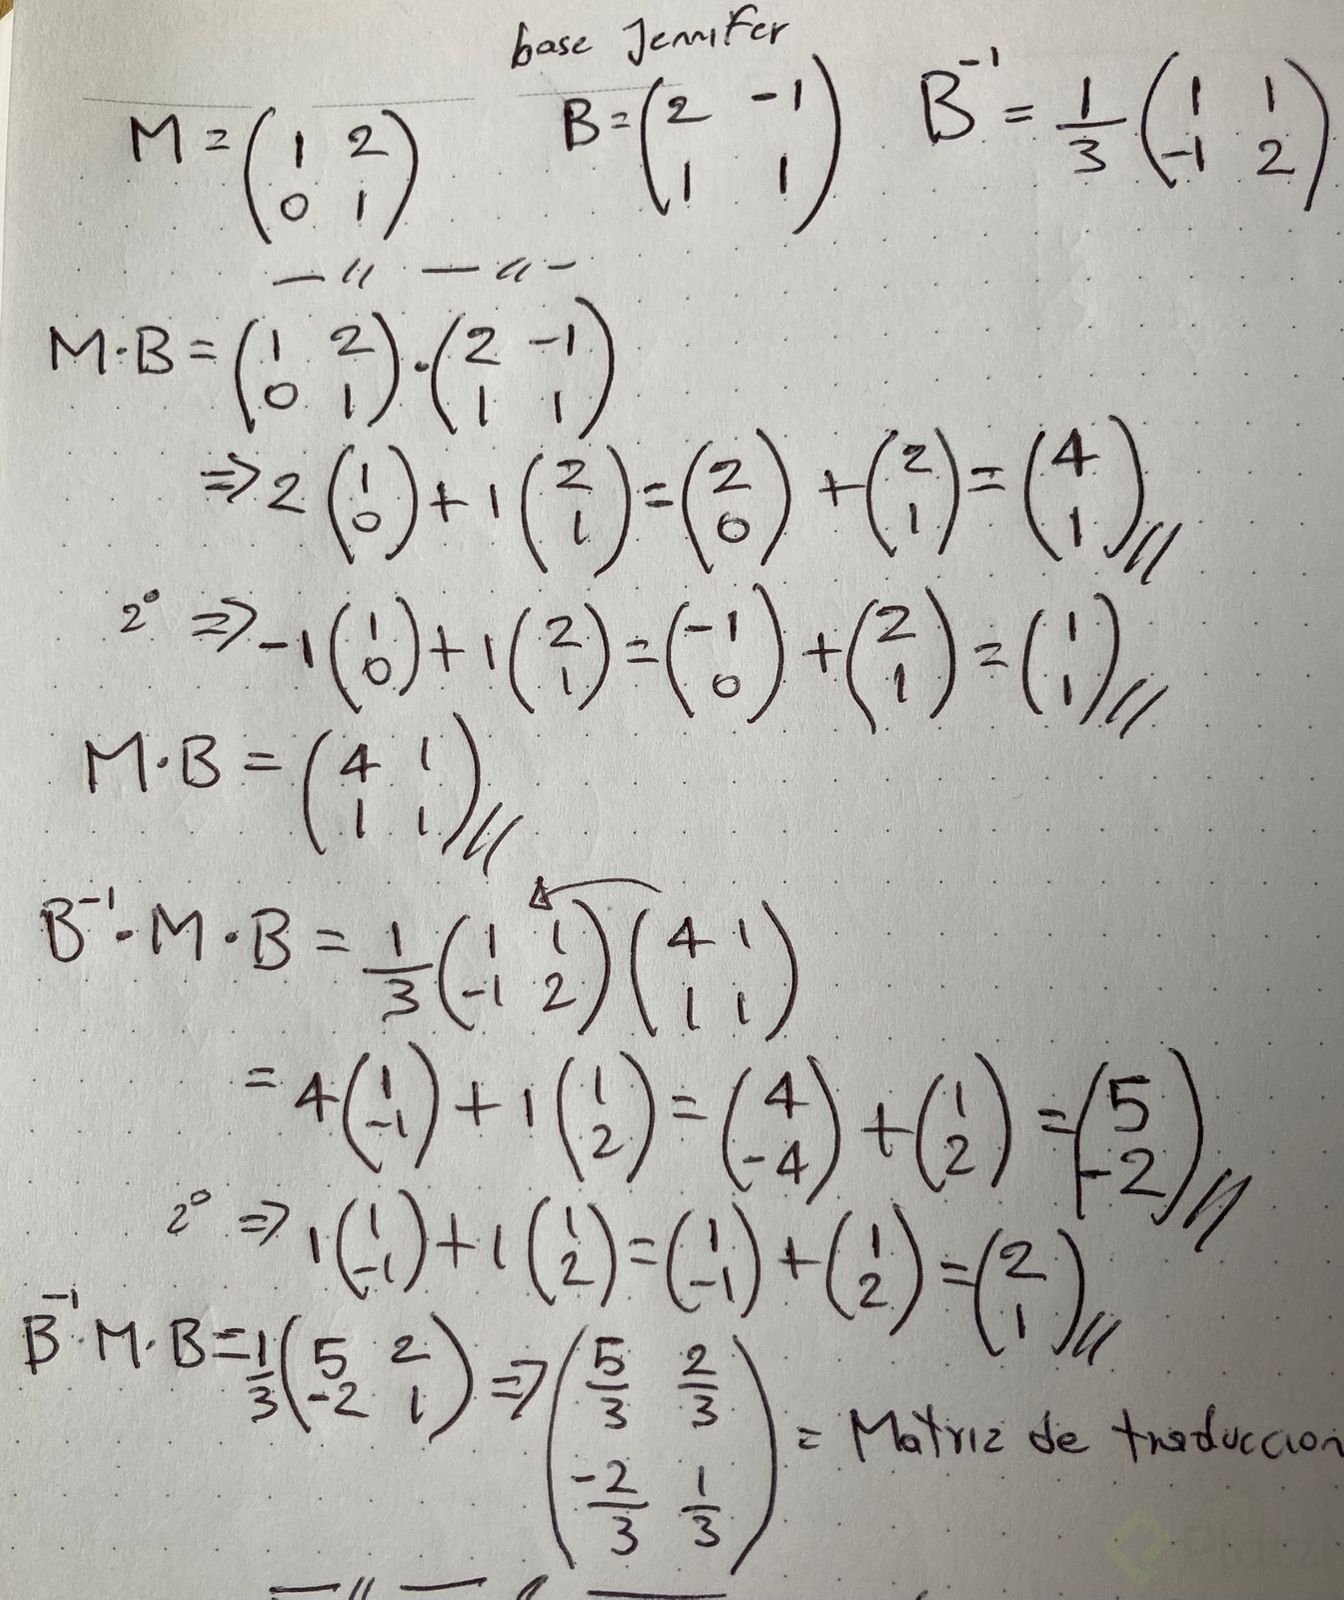 base Jennifer
M = (1 2; 0 1) B = (2 -1; 1 1) B⁻¹ = 1/3 (1 1; -1 2)
M·B = (1 2; 0 1)·(2 -1; 1 1)
⇒ 2 (1; 0) + 1 (2; 1) = (2; 0) + (2; 1) = (4; 1) //
2° ⇒ -1 (1; 0) + 1 (2; 1) = (-1; 0) + (2; 1) = (1; 1) //
M·B = (4 1; 1 1) //
B⁻¹·M·B = 1/3 (1 1; -1 2) (4 1; 1 1)
= 4 (1; -1) + 1 (1; 2) = (4; -4) + (1; 2) = (5; -2) //
2° ⇒ 1 (1; -1) + 1 (1; 2) = (1; -1) + (1; 2) = (2; 1) //
B⁻¹·M·B = 1/3 (5 2; -2 1) ⇒ (5/3 2/3; -2/3 1/3) = Matriz de traduccion